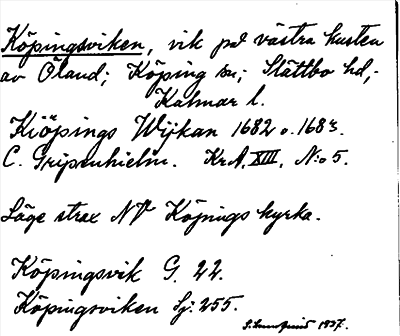 Köpingsviken, vik på västra kusten
av Öland; Köping sn; Slättbo hd,
Kalmar l.
Kiöpings Wijkan 1682 o. 1683.
C. Gripenhielm. KrA. XIII, N:o 5.
Läge strax NV Köpings kyrka.
Köpingsvik G. 22.
Köpingsviken Sj. 255.
1937.